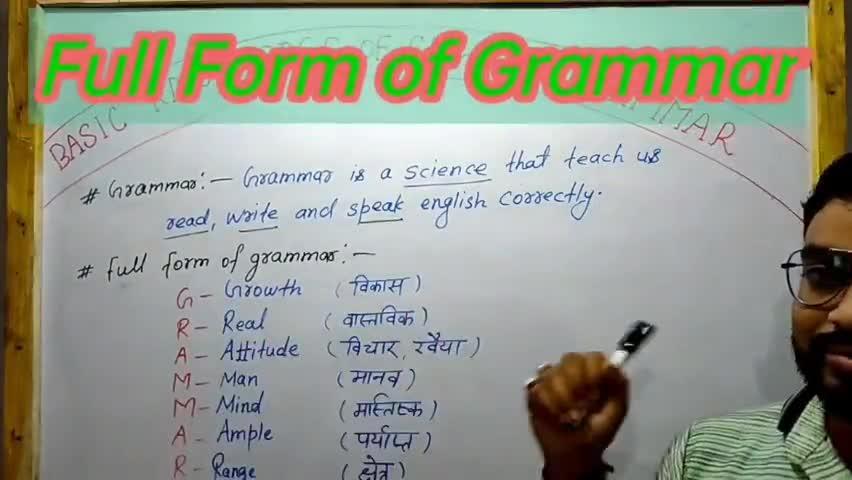 Full Form of Grammar
BASIC GRAMMAR
# Grammar:- Grammar is a science that teach us
read, write and speak english correctly.
# full form of grammar:-
G - Growth (विकास)
R - Real (वास्तविक)
A - Attitude (विचार, रवैया)
M - Man (मानव)
M - Mind (मास्तिष्क)
A - Ample (पर्याप्त)
R - Range (क्षेत्र)